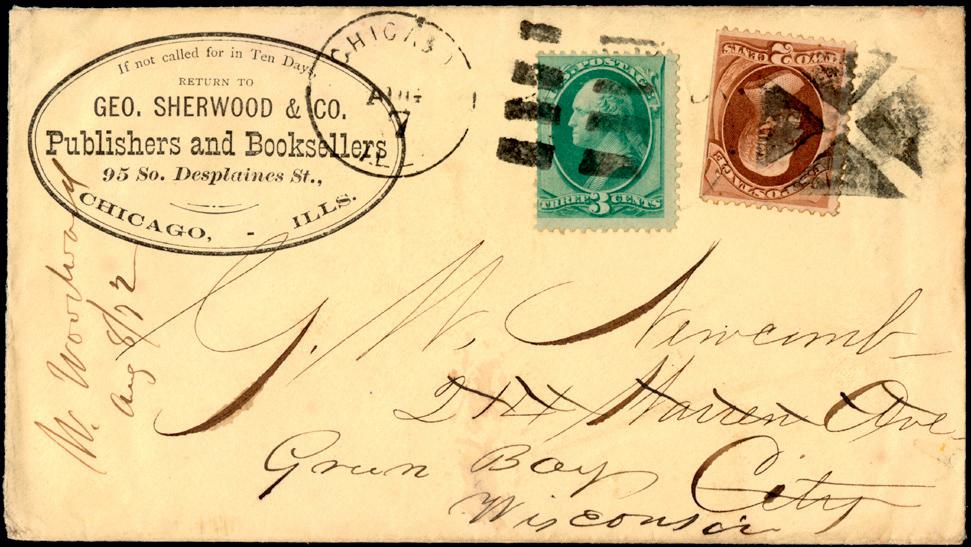 If not called for in Ten Days,
RETURN TO
GEO. SHERWOOD & CO.
Publishers and Booksellers
95 So. Desplaines St.,
CHICAGO, - ILLS.
CHICAGO
U.S. POSTAGE
THREE 3 CENTS
POSTAGE
TWO 2 CENTS
G. W. Newcomb
244 Warren Ave
City
Green Bay
Wisconsin
Aug 8/72